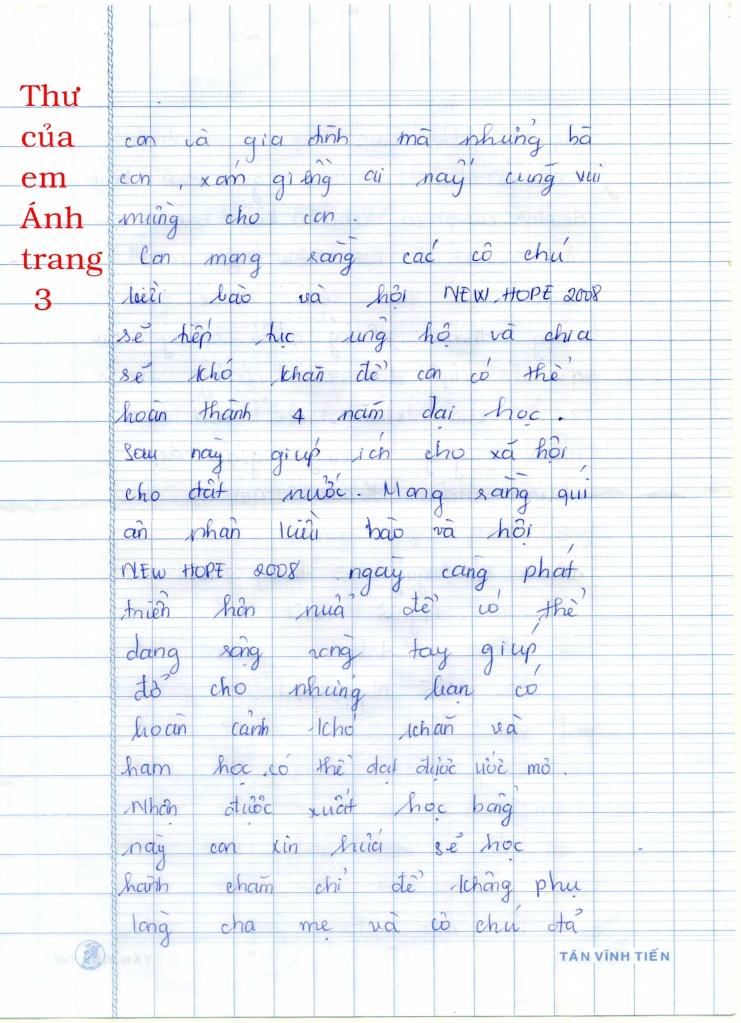 Thư
của
em
Ánh
trang
3
con và gia đình mà những bà
con, xóm giềng ai nấy cũng vui
mừng cho con.
Con mong rằng các cô chú
kiều bào và hội NEW HOPE 2008
sẽ tiếp tục ủng hộ và chia
sẽ khó khăn để con có thể
hoàn thành 4 năm đại học.
Sau này giúp ích cho xã hội
cho đất nước. Mong rằng quí
ân nhân kiều bào và hội
NEW HOPE 2008 ngày càng phát
triển hơn nữa để có thể
dang rộng vòng tay giúp
đở cho những bạn có
hoàn cảnh khó khăn và
ham học, có thể đạt được ước mơ.
Nhận được xuất học bổng
này con xin hứa sẽ học
hành chăm chỉ để không phụ
lòng cha mẹ và cô chú đả
TÂN VĨNH TIẾN